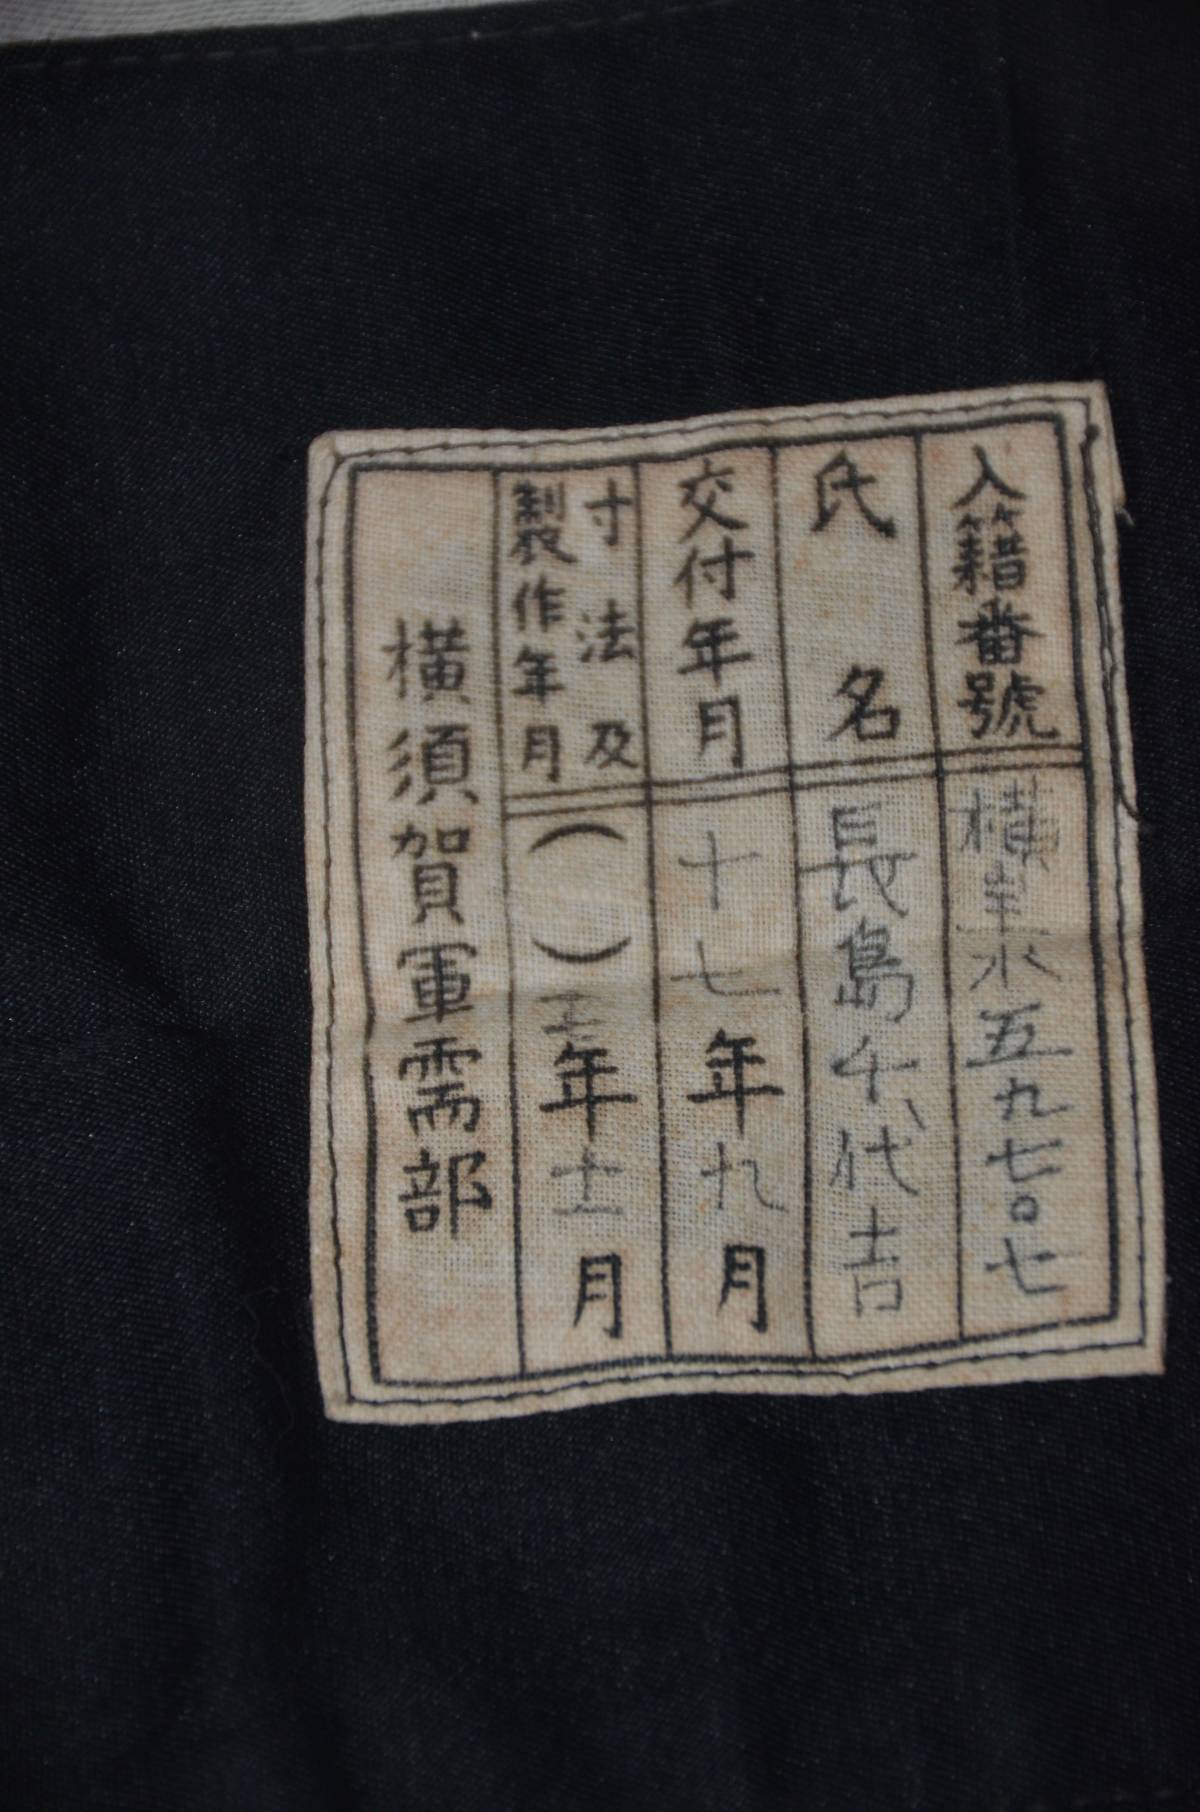 入籍番號 横水五九七〇七
氏名 長島千代吉
交付年月 十七年九月
寸法及
製作年月 （ ） 年 月
横須賀軍需部